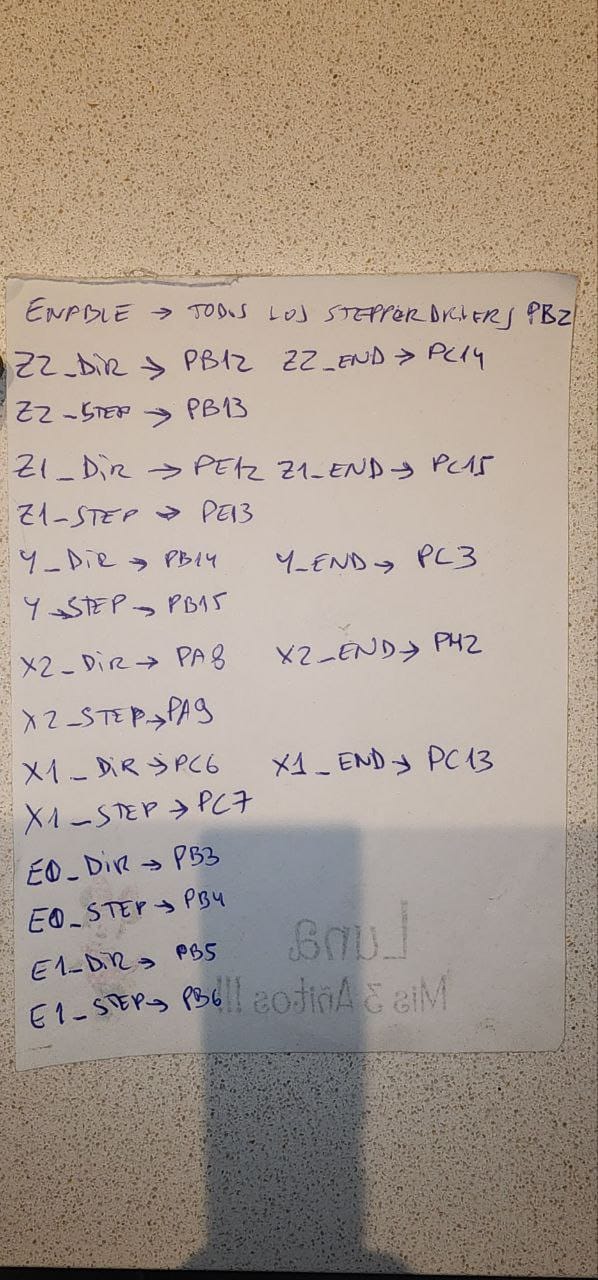 ENABLE → TODOS LOS STEPPER DRIVERS PB2
Z2_DIR → PB12 Z2_END → PC14
Z2-STEP → PB13
Z1_DIR → PE12 Z1-END → PC15
Z1-STEP → PE13
Y_DIR → PB14 Y_END → PC3
Y-STEP → PB15
X2_DIR → PA8 X2_END → PH2
X2_STEP → PA9
X1_DIR → PC6 X1_END → PC13
X1_STEP → PC7
E0_DIR → PB3
E0_STEP → PB4
E1_DIR → PB5
E1_STEP → PB6
Luna
Mis 3 Añitos !!!